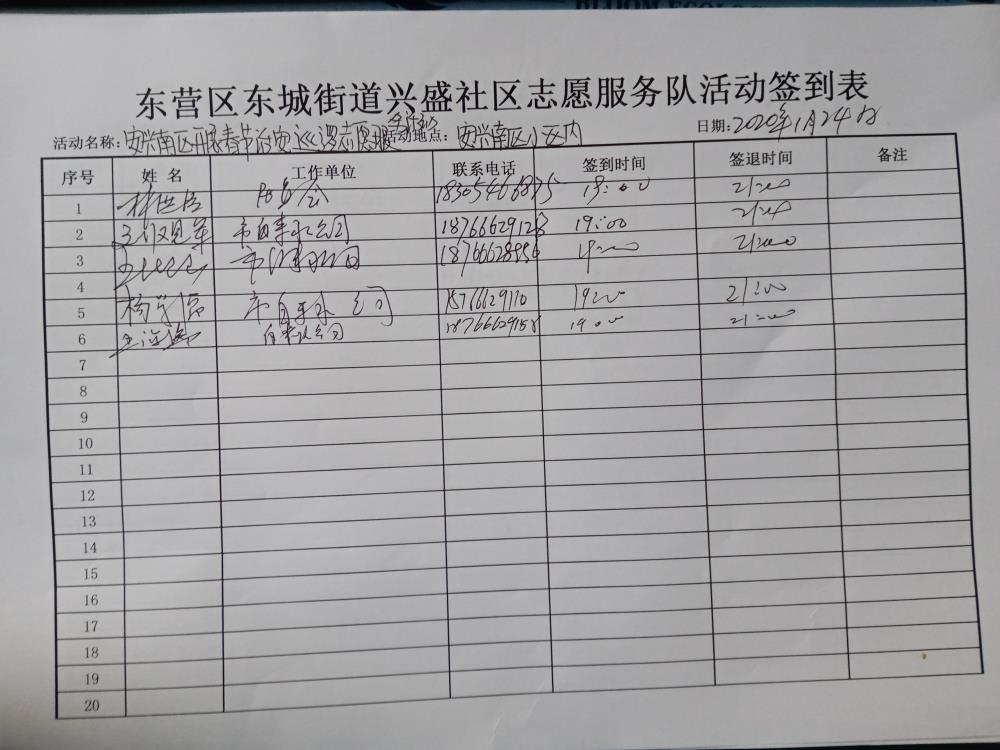 东营区东城街道兴盛社区志愿服务队活动签到表
活动名称:安兴南区开展春节治安巡逻志愿服务活动 活动地点:安兴南区小区内 日期:2020年1月24日
序号 姓名 工作单位 联系电话 签到时间 签退时间 备注
1 18305466875 19:00 21:00
2 市自来水公司 18766629128 19:00 21:00
3 18766628996 19:00 21:00
4
5 市自来水公司 18766629110 19:00 21:00
6 自来水公司 18766629158 19:00 21:00
7
8
9
10
11
12
13
14
15
16
17
18
19
20